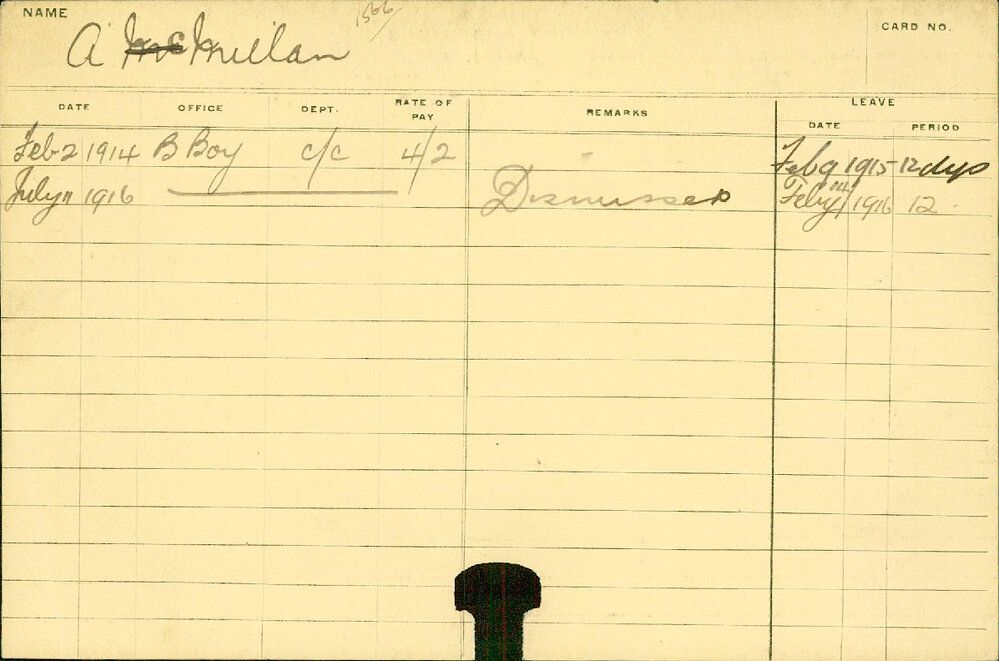 NAME
1566/
CARD NO.
A McMillan
DATE OFFICE DEPT. RATE OF PAY REMARKS LEAVE
DATE PERIOD
Feb 2 1914 B Boy c/c 4/2 Feb 9 1915 12 dys
July 11 1916 Dismissed Feby 14/1916 12